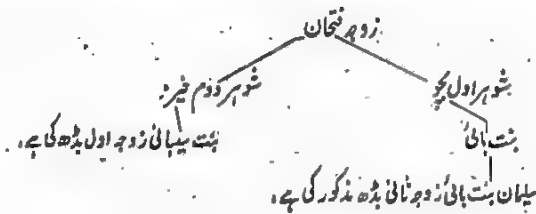 زوجہ فتحان
شوہر اول بچو
شوہر دوم خیرہ
بنت بائی
بنت بیبائی زوجہ اول بڈھ کی ہے۔
سیلمان بنت بائی زوجہ ثانی بڈھ مذکور کی ہے۔